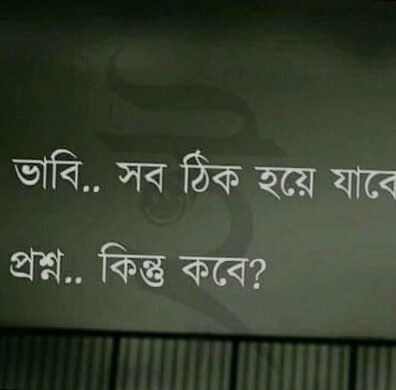 ভাবি.. সব ঠিক হয়ে যাবে
প্রশ্ন.. কিন্তু কবে?